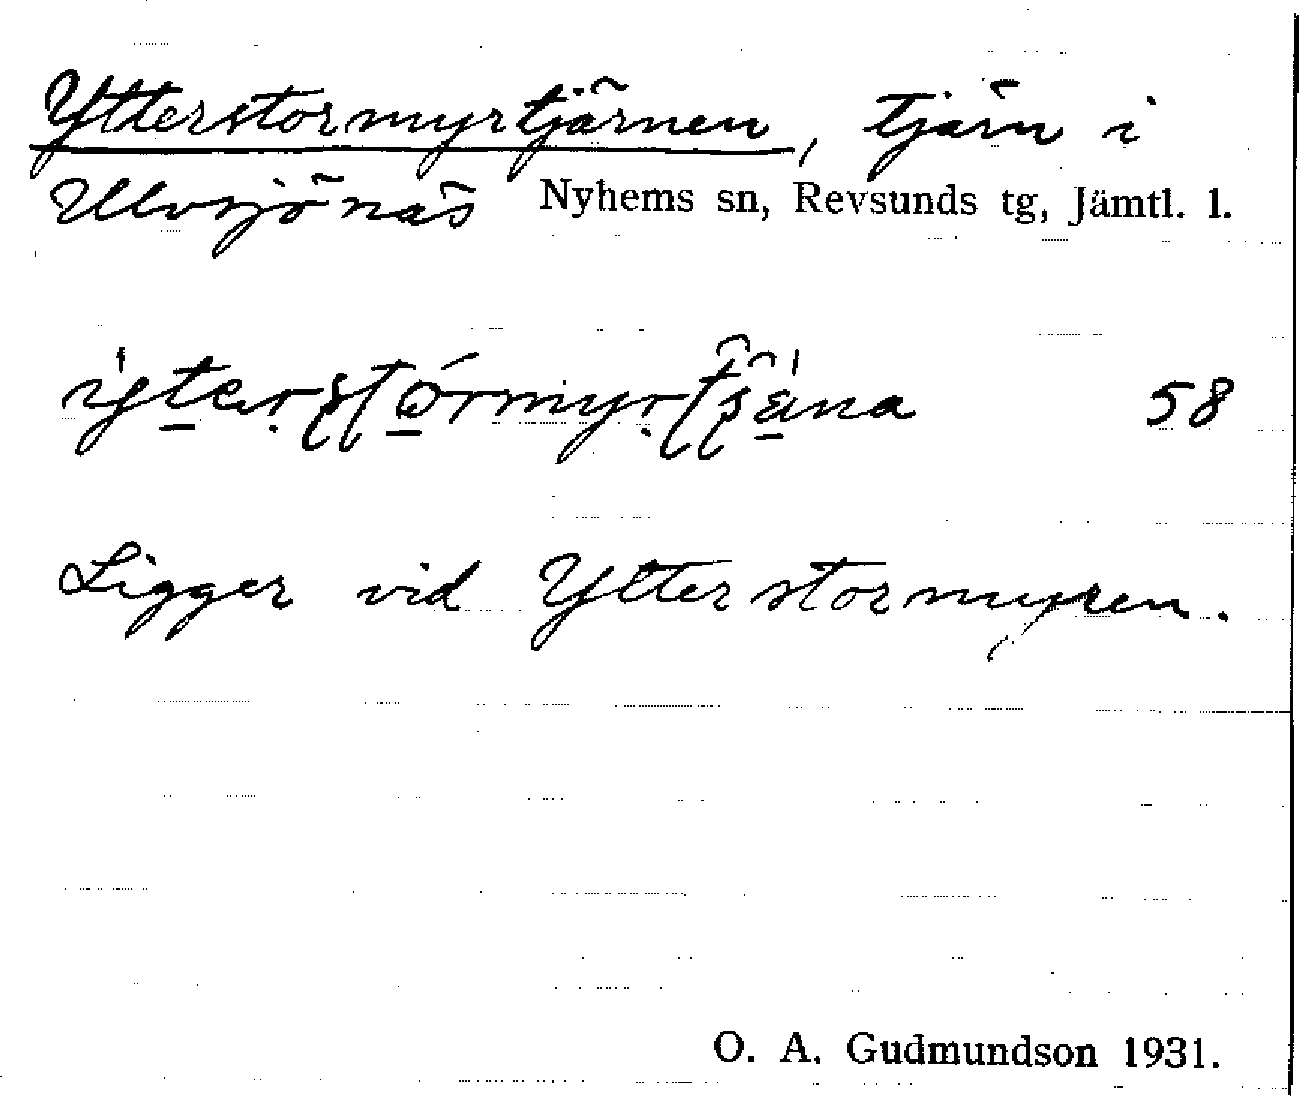 Ytterstormyrtjärnen, tjärn i
Ulvsjönäs Nyhems sn, Revsunds tg, Jämtl. l.
58
Ligger vid Ytterstormyren.
O. A. Gudmundson 1931.